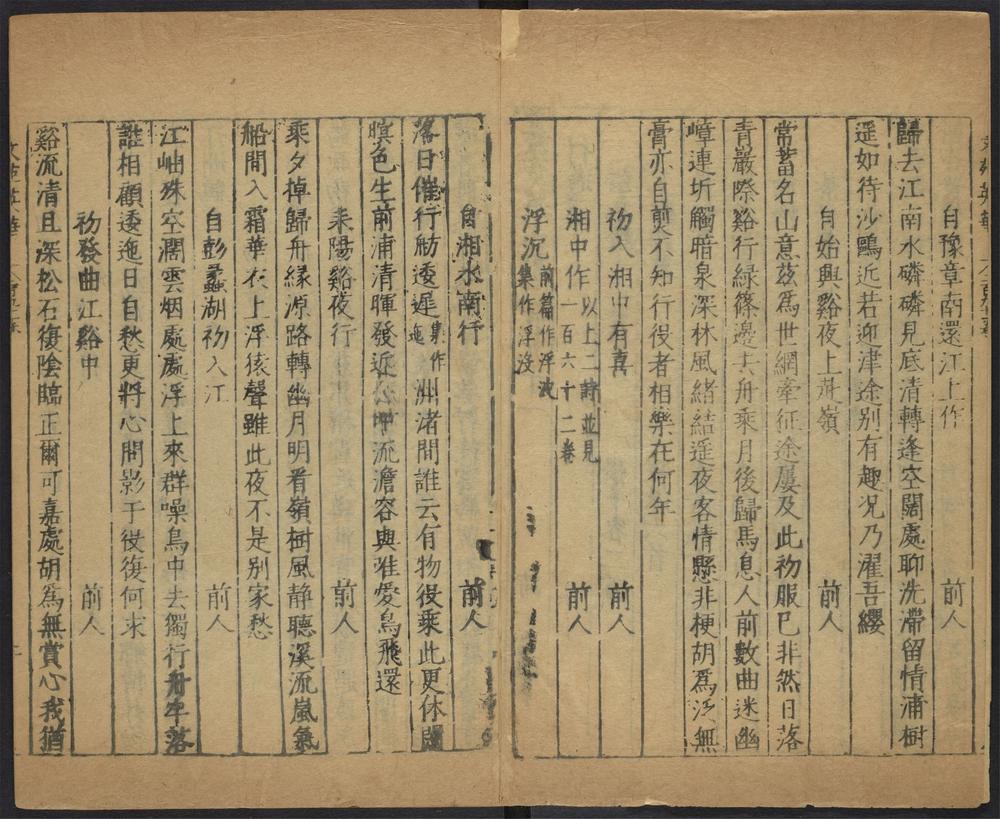 自豫章南還江上作 前人
歸去江南水磷磷見底清轉逢空闊處聊洗滯留情浦樹
遥如待沙鷗近若迎津途别有趣况乃濯吾纓
自始興谿夜上赴嶺 前人
常蓄名山意兹為世網牽征途屢及此初服已非然日落
青巖際谿行緑篠邊去舟乘月後歸鳥息人前數曲迷幽
嶂連圻觸暗泉深林風緒結遥夜客情懸非梗胡為泛無
膏亦自煎不知行役者相樂在何年
初入湘中有喜 前人
湘中作一百六十二卷 以上二詩並見 前人
浮沉 前篇作浮波 集作浮没
自湘水南行 前人
落日催行舫逶遲 集作迤 洲渚間誰云有物役乘此更休閑
暝色生前浦清暉發近山中流澹容與唯愛鳥飛還
耒陽谿夜行 前人
乘夕棹歸舟緣源路轉幽月明看嶺樹風静聽溪流嵐氣
船間入霜華衣上浮猿聲雖此夜不是别家愁
自彭蠡湖初入江 前人
江岫殊空濶雲烟處處浮上來群噪鳥中去獨行舟牢落
誰相顧逶迤日自愁更將心問影于役復何求
初發曲江谿中 前人
谿流清且深松石復陰臨正爾可嘉處胡為無賞心我猶